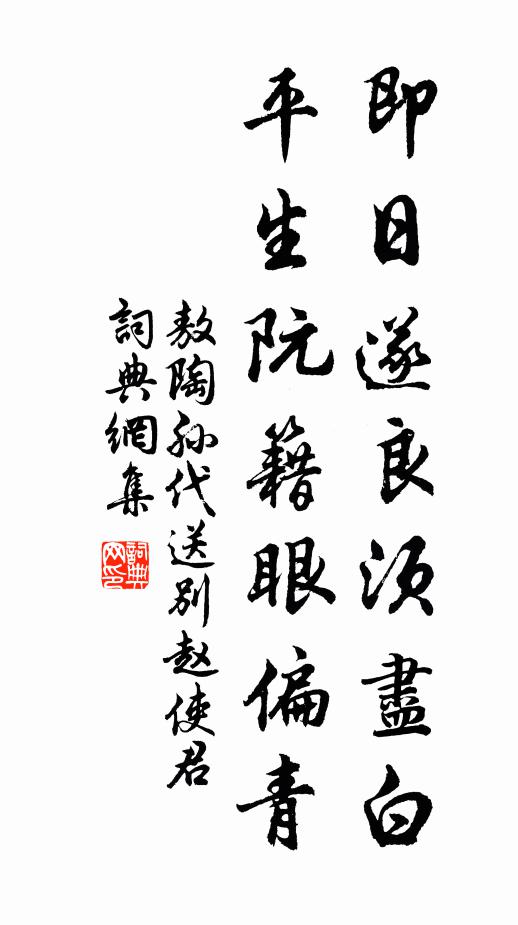 即日遂良須盡白
平生阮籍眼偏青
敖陶孙代送别赵使君
詞典網集
詞典网印